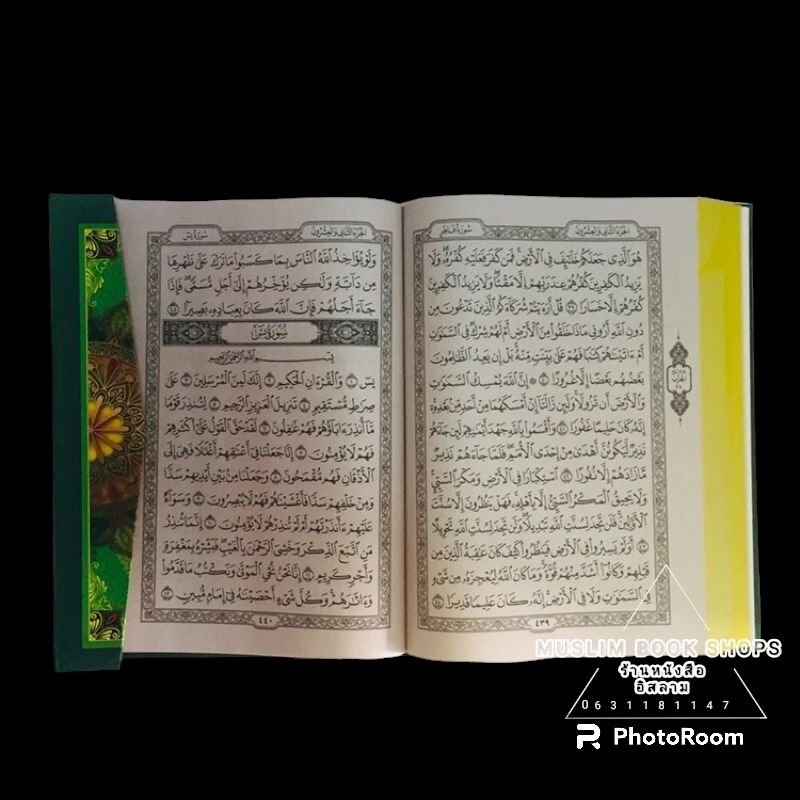 الجزء الثاني والعشرون
سورة فاطر
هُوَ ٱلَّذِى جَعَلَكُمْ خَلَٰٓئِفَ فِى ٱلْأَرْضِ فَمَن كَفَرَ فَعَلَيْهِ كُفْرُهُۥ وَلَا
يَزِيدُ ٱلْكَٰفِرِينَ كُفْرُهُمْ عِندَ رَبِّهِمْ إِلَّا مَقْتًا وَلَا يَزِيدُ ٱلْكَٰفِرِينَ
كُفْرُهُمْ إِلَّا خَسَارًا ٣٩ قُلْ أَرَءَيْتُمْ شُرَكَآءَكُمُ ٱلَّذِينَ تَدْعُونَ مِن
دُونِ ٱللَّهِ أَرُونِى مَاذَا خَلَقُوا۟ مِنَ ٱلْأَرْضِ أَمْ لَهُمْ شِرْكٌ فِى ٱلسَّمَٰوَٰتِ
أَمْ ءَاتَيْنَٰهُمْ كِتَٰبًا فَهُمْ عَلَىٰ بَيِّنَتٍ مِّنْهُ بَلْ إِن يَعِدُ ٱلظَّٰلِمُونَ
بَعْضُهُم بَعْضًا إِلَّا غُرُورًا ٤٠ ۞ إِنَّ ٱللَّهَ يُمْسِكُ ٱلسَّمَٰوَٰتِ
وَٱلْأَرْضَ أَن تَزُولَا وَلَئِن زَالَتَآ إِنْ أَمْسَكَهُمَا مِنْ أَحَدٍ مِّنۢ بَعْدِهِۦٓ
إِنَّهُۥ كَانَ حَلِيمًا غَفُورًا ٤١ وَأَقْسَمُوا۟ بِٱللَّهِ جَهْدَ أَيْمَٰنِهِمْ لَئِن جَآءَهُمْ
نَذِيرٌ لَّيَكُونُنَّ أَهْدَىٰ مِنْ إِحْدَى ٱلْأُمَمِ فَلَمَّا جَآءَهُمْ نَذِيرٌ
مَّا زَادَهُمْ إِلَّا نُفُورًا ٤٢ ٱسْتِكْبَارًا فِى ٱلْأَرْضِ وَمَكْرَ ٱلسَّيِّئِ
وَلَا يَحِيقُ ٱلْمَكْرُ ٱلسَّيِّئُ إِلَّا بِأَهْلِهِۦ فَهَلْ يَنظُرُونَ إِلَّا سُنَّتَ
ٱلْأَوَّلِينَ فَلَن تَجِدَ لِسُنَّتِ ٱللَّهِ تَبْدِيلًا وَلَن تَجِدَ لِسُنَّتِ ٱللَّهِ تَحْوِيلًا
٤٣ أَوَلَمْ يَسِيرُوا۟ فِى ٱلْأَرْضِ فَيَنظُرُوا۟ كَيْفَ كَانَ عَٰقِبَةُ ٱلَّذِينَ مِن
قَبْلِهِمْ وَكَانُوٓا۟ أَشَدَّ مِنْهُمْ قُوَّةً وَمَا كَانَ ٱللَّهُ لِيُعْجِزَهُۥ مِن شَىْءٍ
فِى ٱلسَّمَٰوَٰتِ وَلَا فِى ٱلْأَرْضِ إِنَّهُۥ كَانَ عَلِيمًا قَدِيرًا ٤٤
٤٣٩
الجزء الثاني والعشرون
سورة يس
وَلَوْ يُؤَاخِذُ ٱللَّهُ ٱلنَّاسَ بِمَا كَسَبُوا۟ مَا تَرَكَ عَلَىٰ ظَهْرِهَا
مِن دَآبَّةٍ وَلَٰكِن يُؤَخِّرُهُمْ إِلَىٰٓ أَجَلٍ مُّسَمًّى فَإِذَا
جَآءَ أَجَلُهُمْ فَإِنَّ ٱللَّهَ كَانَ بِعِبَادِهِۦ بَصِيرًۢا ٤٥
سورة يس
بِسْمِ ٱللَّهِ ٱلرَّحْمَٰنِ ٱلرَّحِيمِ
يسٓ ١ وَٱلْقُرْءَانِ ٱلْحَكِيمِ ٢ إِنَّكَ لَمِنَ ٱلْمُرْسَلِينَ ٣ عَلَىٰ
صِرَٰطٍ مُّسْتَقِيمٍ ٤ تَنزِيلَ ٱلْعَزِيزِ ٱلرَّحِيمِ ٥ لِتُنذِرَ قَوْمًا
مَّآ أُنذِرَ ءَابَآؤُهُمْ فَهُمْ غَٰفِلُونَ ٦ لَقَدْ حَقَّ ٱلْقَوْلُ عَلَىٰٓ أَكْثَرِهِمْ
فَهُمْ لَا يُؤْمِنُونَ ٧ إِنَّا جَعَلْنَا فِىٓ أَعْنَٰقِهِمْ أَغْلَٰلًا فَهِىَ إِلَى
ٱلْأَذْقَانِ فَهُم مُّقْمَحُونَ ٨ وَجَعَلْنَا مِنۢ بَيْنِ أَيْدِيهِمْ سَدًّا
وَمِنْ خَلْفِهِمْ سَدًّا فَأَغْشَيْنَٰهُمْ فَهُمْ لَا يُبْصِرُونَ ٩ وَسَوَآءٌ
عَلَيْهِمْ ءَأَنذَرْتَهُمْ أَمْ لَمْ تُنذِرْهُمْ لَا يُؤْمِنُونَ ١٠ إِنَّمَا تُنذِرُ
مَنِ ٱتَّبَعَ ٱلذِّكْرَ وَخَشِىَ ٱلرَّحْمَٰنَ بِٱلْغَيْبِ فَبَشِّرْهُ بِمَغْفِرَةٍ
وَأَجْرٍ كَرِيمٍ ١١ إِنَّا نَحْنُ نُحْىِ ٱلْمَوْتَىٰ وَنَكْتُبُ مَا قَدَّمُوا۟
وَءَاثَٰرَهُمْ وَكُلَّ شَىْءٍ أَحْصَيْنَٰهُ فِىٓ إِمَامٍ مُّبِينٍ ١٢
٤٤٠
MUSLIM BOOK SHOPS
ร้านหนังสือ
อิสลาม
0631181147
PhotoRoom